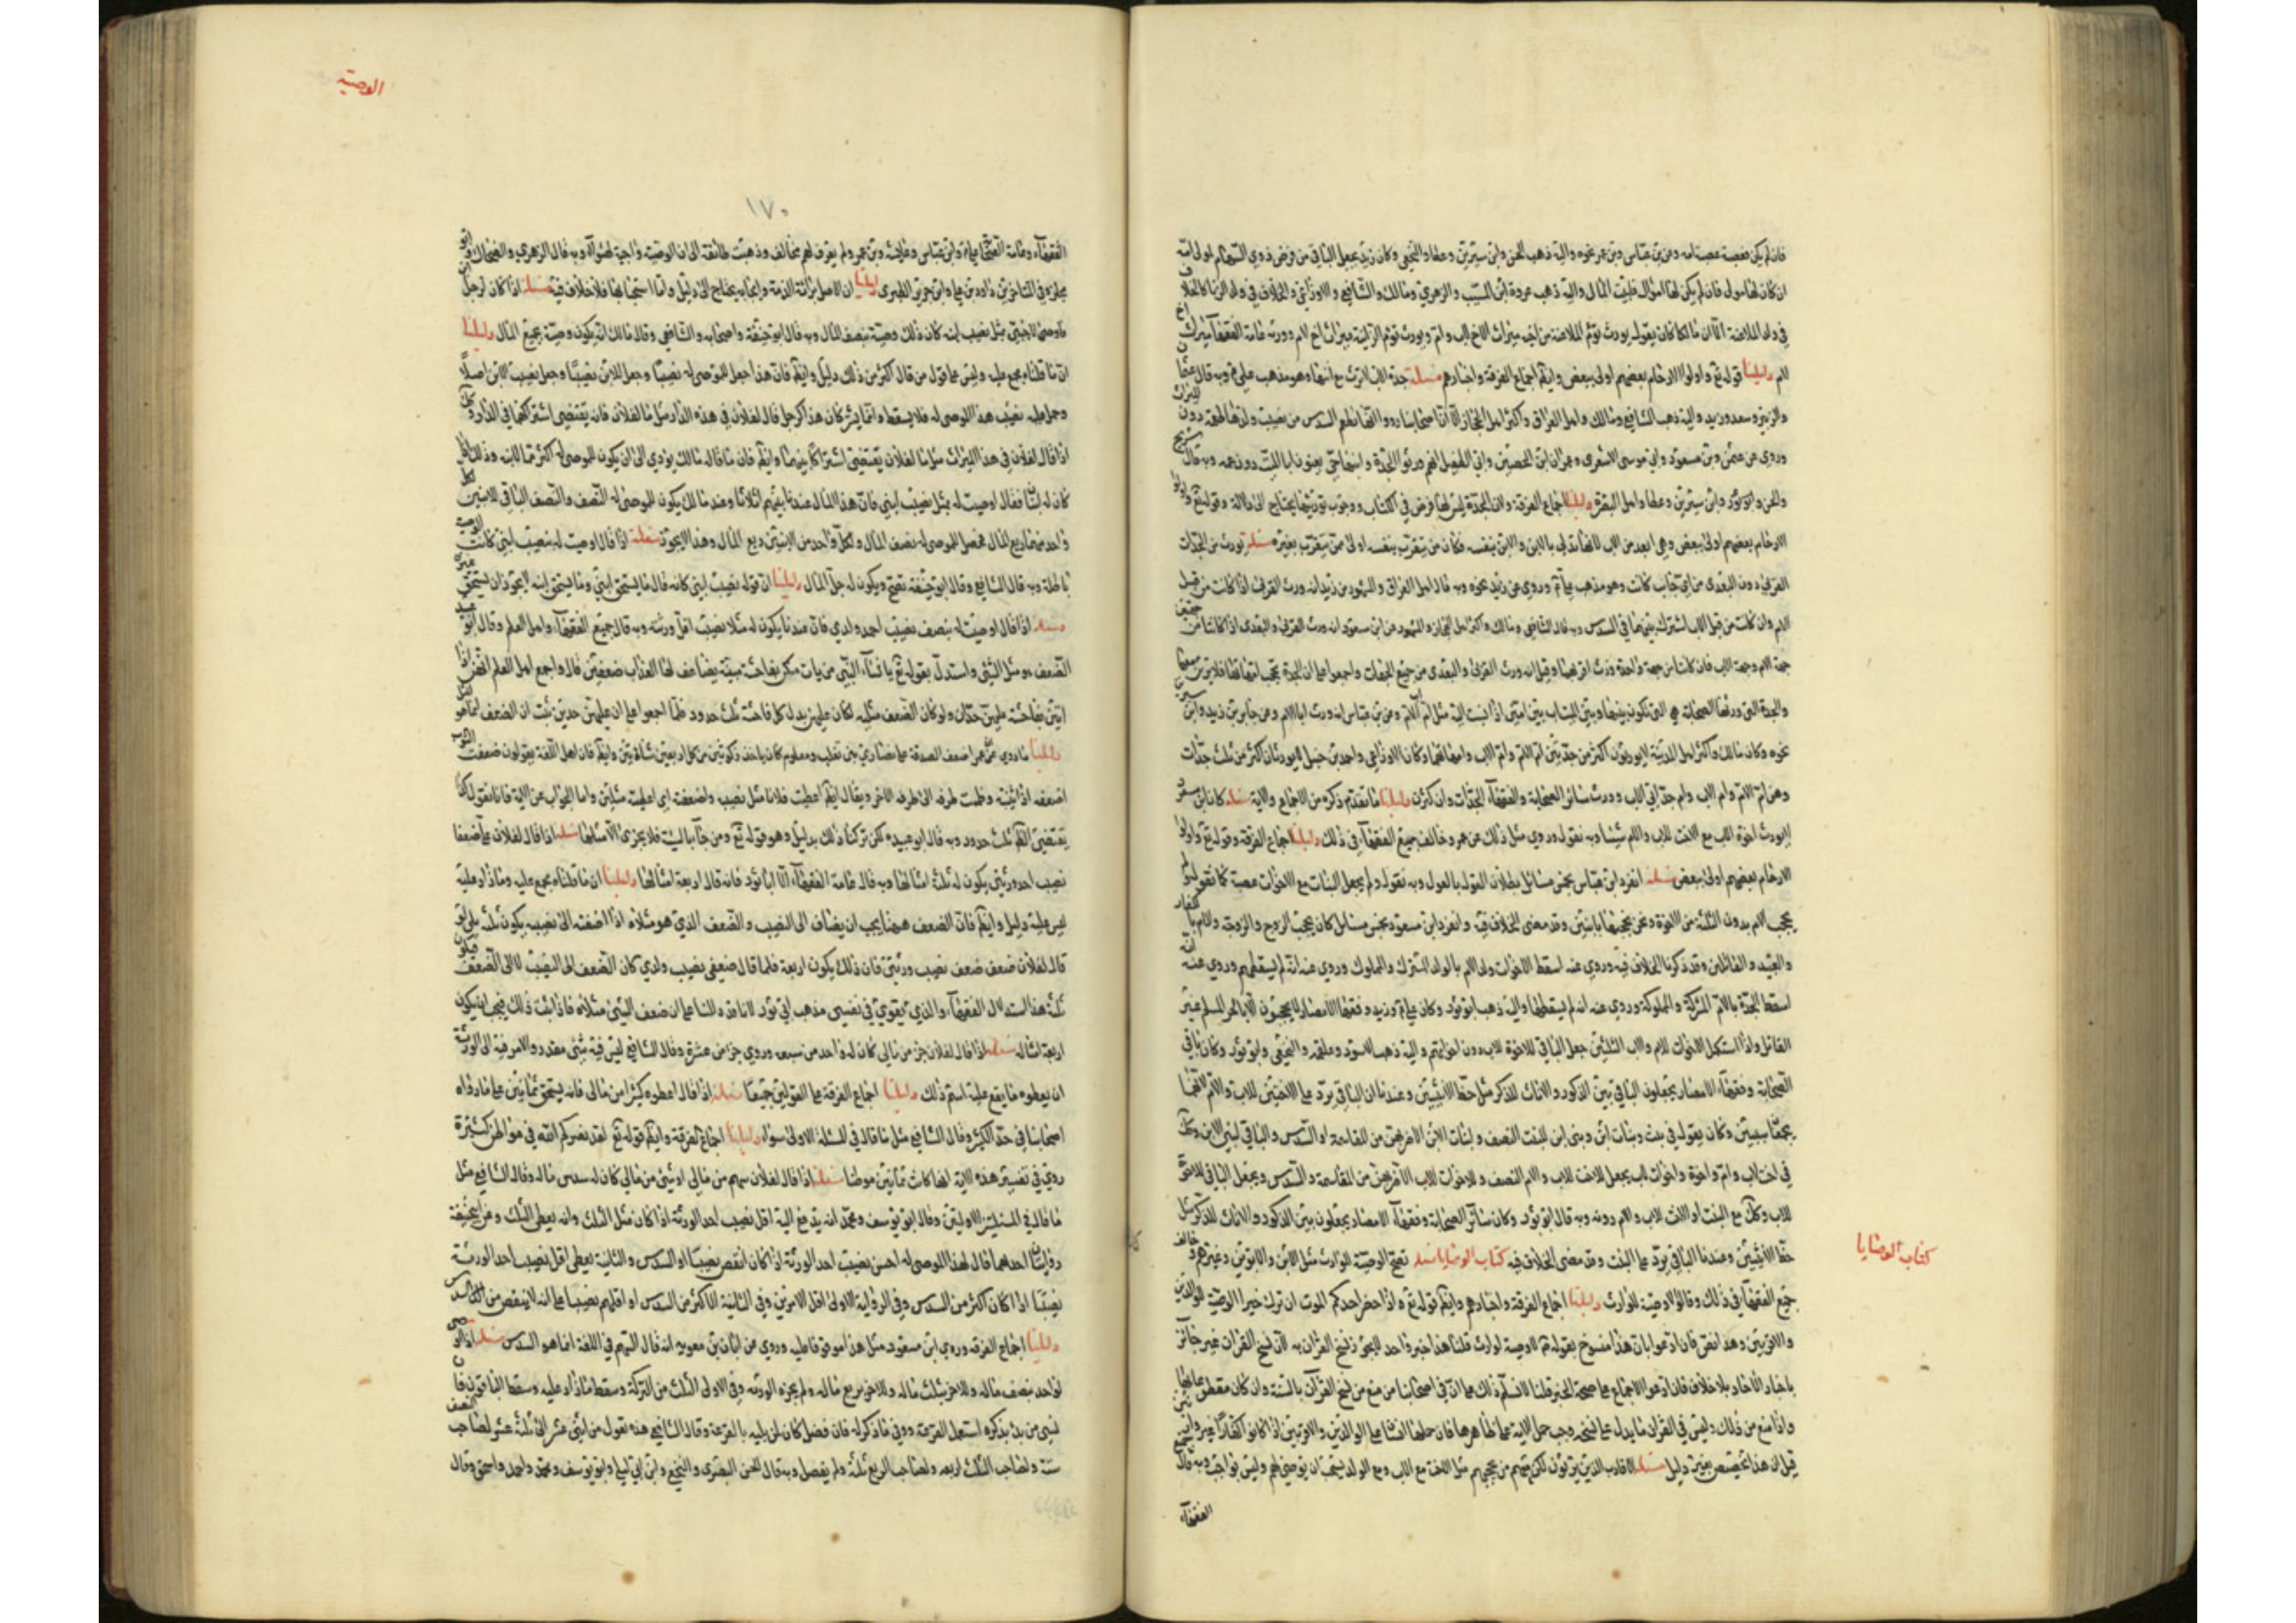 فان لم يكن فعصبة عصبة امه وعن بن عباس وبن عمر نحوه واليه ذهب الحسن وابن سيرين وعطا والنخعي وكان زيد يجعل الباقي من فرض ذوي السهام لمولى امه
ان كان لها مولى فان لم يكن لها مولى لبيت المال واليه ذهب عروة ابن المسيب والزهري ومالك والشافعي والاوزاعي والخلاف في ولد الزنا كالخلاف
في ولد الملاعنة الا ان مالكا كان يقول يورث توم الملاعنة من اخيه ميراث الاخ لاب وام ويورث توم الزانية ميراث اخ لام وورثه عامة الفقهاء ميراث اخ
لام دليلنا قوله تع واولوا الارحام بعضهم اولى ببعض وايضا اجماع الفرقة واخبارهم مسئلة جدة الاب لا ترث مع ابنها وهو مذهب علي ع وبه قال
والزبير وسعد وزيد واليه ذهب الشافعي ومالك واهل العراق واكثر اهل الحجاز الا ان اصحابنا رووا انها تطعم السدس من نصيب ولدها طعمة دون الميراث
وروي عن عثمن وبن مسعود وابي موسى الاشعري وعمران ابن الحصين وابي الطفيل انهم ورثوا الجدة وابنها حي يعنون ابا الميت دون عمه وبه قال شريح
والحسن وابو ثور وابن سيرين وعطا واهل البصرة دليلنا اجماع الفرقة وان الجدة ليس لها فرض في الكتاب ووجوب توريثها يحتاج الى دلالة وقوله تع واولوا
الارحام بعضهم اولى ببعض وهي ابعد من الاب لانها تدلي بالابن والابن بنفسه فكان من يتقرب بنفسه اولى ممن يتقرب بغيره مسئلة تورث من الجدات
القربى دون البعدى من اي جانب كانت وهو مذهب علي ع وروي عن زيد نحوه وبه قال اهل العراق والمشهور عن زيد انه ورث القربى اذا كانت من قبل
الام وان كانت من قبل الاب اشترك بينهما في السدس وبه قال الشافعي ومالك واكثر اهل الحجاز والمشهور عن ابن مسعود انه ورث القربى والبعدى اذا كانتا من
جهة الام وجهة الاب فان كانتا من جهة واحدة ورث اقربهما وقيل انه ورث القربى والبعدى من جميع الجهات واجمعوا على ان الجدة تحجب امهاتها فلا يرثن معها
والجدة التي ورثها الصحابة هي التي تكون بينها وبين المنتساب بين امين اذا نسبت اليه مثل ام اب الام وعن بن عباس انه ورث ابا الام وعن جابر بن زيد وابن سيرين
نحوه وكان مالك واكثر اهل المدينة لا يورثون اكثر من جدتين ام الام وام الاب وامهاتهما وكان الاوزاعي واحمد بن حنبل لا يورثان اكثر من ثلث جدات
وهن ام الام وام الاب وام جد ابي الاب وورث سائر الصحابة والفقهاء الجدات وان كثرن دليلنا ما تقدم ذكره من الاجماع والاية مسئلة كان ابن مسعود
لا يورث اخوة الاب مع الاخت للاب والام شيئا وبه نقول وروي مثل ذلك عن عمر وخالف جميع الفقهاء في ذلك دليلنا اجماع الفرقة وقوله تع واولوا
الارحام بعضهم اولى ببعض مسئلة انفرد ابن عباس بخمس مسائل بطلان القول بالعول وبه نقول ولم يجعل البنات مع الاخوات عصبة كما نقول ولم
يحجب الام بدون الثلثة من الاخوة ونحن نحجبها باثنين وقد مضى الخلاف فيه وانفرد ابن مسعود بخمس مسائل كان يحجب الزوج والزوجة والام بالكفار
والعبيد والقاتلين وقد ذكرنا الخلاف فيه وروي عنه اسقط الاخوات ولد الام بالولد المشرك والمملوك وروي عنه انه لم يسقطهم وروي عنه انه
اسقط الجدة بالام المشركة والمملوكة وروي عنه انه لم يسقطها واليه ذهب ابو ثور وكان علي ع وزيد وفقهاء الامصار لا يحجبون الا بالحر المسلم غير
القاتل واذا استكمل الاخوات للام والاب الثلثين جعل الباقي للاخوة للاب دون اخواتهم واليه ذهب الاسود وعلقمة والنخعي وابو ثور وكان باقي
الصحابة وفقهاء الامصار يجعلون الباقي بين الذكور والاناث للذكر مثل حظ الانثيين وعندنا ان الباقي يرد على الاختين للاب والام لانهما
يجمعا سببين وكان يقول في بنت وبنات ابن وبني ابن للبنت النصف ولبنات الابن الاضر بهن من المقاسمة او السدس والباقي لبني الابن وكذلك
في اخت لاب وام واخوة واخوات لاب يجعل للاخت للاب والام النصف وللاخوات للاب الاضر بهن من المقاسمة والسدس ويجعل الباقي للاخوة
للاب وكان مع البنت او الاخت للاب والام دونه وبه قال ابو ثور وكان سائر الصحابة وفقهاء الامصار يجعلون بين الذكور والاناث للذكر مثل
حظ الانثيين وعندنا الباقي يرد على البنت وقد مضى الخلاف فيه كتاب الوصايا مسئلة تصح الوصية للوارث مثل الابن والابوين وغيرهم وخالف
كتاب الوصايا
جميع الفقهاء في ذلك وقالوا لا وصية للوارث دليلنا اجماع الفرقة واخبارهم وايضا قوله تع اذا حضر احدكم الموت ان ترك خيرا الوصية للوالدين
والاقربين وهذا نص فان ادعوا بان هذا منسوخ بقوله ع لا وصية لوارث قلنا هذا خبر واحد لا يجوز نسخ القران به لان نسخ القران غير جائز
باخبار الاحاد بلا خلاف فان ادعوا الاجماع على صحة الخبر قلنا لا نسلم ذلك على ان في اصحابنا من منع من نسخ القرآن بالسنة وان كان مقطوعا بها
واذا منع من ذلك وليس في القران ما يدل على نسخه وجب حمل الاية على ظاهرها فان حملها انسان على الوالدين والاقربين اذا كانوا كفارا غير وارثين
قيل له هذا تخصيص بغير دليل مسئلة الاقارب الذين يرثون لكن معهم من يحجبهم مثل الاخت مع الاب ومع الولد يستحب ان يوصي لهم وليس بواجب وبه قال جميع
الفقهاء
الوصية
١٧٠
الفقهاء وعامة الصحابة علي ع وابن عباس وعائشة وبن عمر ولم يعرف لهم مخالف وذهبت طائفة الى ان الوصية واجبة لهؤلاء وبه قال الزهري والضحاك وابو
مجلز وفي المتاخرين داود بن علي وابن جرير الطبري دليلنا ان الاصل برائة الذمة وايجابه يحتاج الى دليل واما استحبابها فلا خلاف فيه مسئلة اذا كان لرجل ابن
فاوصى لاجنبي مثل نصيب ابنه كان ذلك وصية بنصف المال وبه قال ابو حنيفة واصحابه والشافعي وقال مالك انه يكون وصية بجميع المال دليلنا
ان ما قلناه مجمع عليه وليس على قول من قال اكثر من ذلك دليل وايضا فان هذا جعل للموصى له نصيبا وجعل للابن نصيبا وجعل نصيب الابن اصلا
وحمل عليه نصيب هذا الموصى له فلا يسقط وانما يشركان هذا كرجل قال لفلان في هذه الدار مثل ما لفلان فانه يقتضي اشتراكهما في الدار وكذلك
اذا قال لفلان في هذا الميراث مثل ما لفلان يقتضي اشتراكا بينهما وايضا فان ما قاله مالك يؤدي الى ان يكون للموصى له اكثر مما للابن وذلك
كان له ابنان فقال اوصيت له بمثل نصيب ابني فان هذا المال عندنا بينهم اثلاثا وعند مالك يكون للموصى له النصف والنصف الباقي للابنين لكل
واحد منهما ربع المال فيحصل للموصى له نصف المال ولكل واحد من الابنين ربع المال وهذا لا يجوز مسئلة اذا قال اوصيت له بنصيب ابني كانت الوصية
باطلة وبه قال الشافعي وقال ابو حنيفة تصح ويكون له جل المال دليلنا ان قوله نصيب ابني كانه قال ما يستحق ابني وما يستحق ابنه لا يجوز ان يستحق غيره
مسئلة اذا قال اوصيت له بضعف نصيب احد ولدي فان عندنا يكون له مثلا نصيب اقل ورثته وبه قال جميع الفقهاء واهل العلم وقال ابو عبيد
الضعف هو مثل الشيء واستدل بقوله تع يا نساء النبي من يات منكن بفاحشة مبينة يضاعف لها العذاب ضعفين قال واجمع اهل العلم انهن اذا
اتين بفاحشة عليهن حدان ولو كان الضعف مثليه لكان عليهن بدل كل فاحشة ثلث حدود فلما اجمعوا على ان عليهن حدين ثبت ان الضعف انما هو المثل
دليلنا ما روي عن عمر اضعف الصدقة على نصارى بني تغلب ومعلوم كان ياخذ زكوتين من كل اربعين شاة شاتين وايضا فان اهل اللغة يقولون ضعفت الثوب
اضعفه اذا ثنيته وضممت طرفه الى طرفه الاخر ويقال ايضا اعطيت فلانا مثل نصيب واضعفته اي اعطيته مثلين واما الجواب عن الاية فانا نقول كان
يقتضي الكلم ثلث حدود وبه قال ابو عبيده لكن تركنا ذلك بدليل وهو قوله تع ومن جاء بالسيئة فلا يجزى الا مثلها مسئلة اذا قال لفلان علي ضعفا
نصيب احد ورثتي يكون له ثلثة امثالها وبه قال عامة الفقهاء الا ابا ثور فانه قال اربعة امثالها دليلنا ان ما قلناه مجمع عليه وما زاد عليه
ليس عليه دليل وايضا فان الضعف ههنا يجب ان يضاف الى النصيب والضعف الذي هو مثلاه اذا اضفته الى نصيبه يكون ثلثه بلى لو
قال لفلان ضعف ضعف نصيب ورثتي فان ذلك يكون اربعة فلما قال ضعفي نصيب ولدي كان الضعف الى النصيب لا الى الضعف فيكون
ثلثة هذا استدلال الفقهاء والذي يقوي في نفسي مذهب ابي ثور لانا قد دللنا على ان ضعف الشيء مثلاه فاذا ثبت ذلك فيجب ان يكون
اربعة امثاله مسئلة اذا قال لفلان جزء من مالي كان له واحد من سبعة وروي جزء من عشرة وقال الشافعي ليس فيه شيء مقدر والامر فيه الى الورثة
ان يعطوه ما يقع عليه اسم ذلك دليلنا اجماع الفرقة على القولين جميعا مسئلة اذا قال اعطوه كثيرا من مالي فانه يستحق ثمانين على ما رواه
اصحابنا في حد الكثير وقال الشافعي مثل ما قال في المسئلة الاولى سواء دليلنا اجماع الفرقة وايضا قوله تع لقد نصركم الله في مواطن كثيرة
روي في تفسير هذه الاية انها كانت ثمانين موطنا مسئلة اذا قال لفلان سهم من مالي او شيء من مالي كان له سدس ماله وقال الشافعي مثل
ما قال في المسئلتين الاوليتين وقال ابو يوسف ومحمد انه يدفع اليه اقل نصيب احد الورثة اذا كان مثل الثلث وانه يعطى الثلث وعن ابي حنيفة
روايتان احدهما قال لهذا الموصى له اخس نصيب احد الورثة اذا كان انقص نصيبا او السدس والثانية يعطى اقل نصيب احد الورثة
نصيبا اذا كان اكثر من السدس وفي الرواية الاولى اقل الامرين وفي الثانية الاكثر من السدس او اقلهم نصيبا على انه لا ينقص من السدس
دليلنا اجماع الفرقه وروي ابن مسعود مثل هذا موقوفا عليه وروي عن اياس بن معوية انه قال السهم في اللغة انما هو السدس مسئلة اذا اوصى
لواحد بنصف ماله وللاخر بثلث ماله وللاخر بربع ماله ولم يجزه الورثه وفي الاولى الثلث من التركة وسقط ما زاد عليه وسقط الباقون فان
نسي من بدئ بذكره استعمل القرعة ووفي ما ذكر له فان فضل كان لمن يليه بالقرعة وقال الشافعي هذه تعول من اثني عشر الى ثلثة عشر لصاحب النصف
ستة ولصاحب الثلث اربعه ولصاحب الربع ثلثة ولم يفصل وبه قال الحسن البصري والنخعي وابن ابي ليلى وابو يوسف ومحمد واحمد واسحق وقال